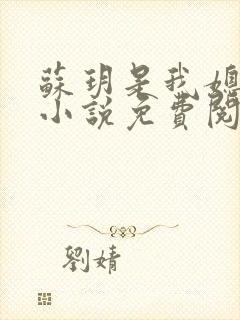 蘇玥是我媳
小說免費閱
劉婧